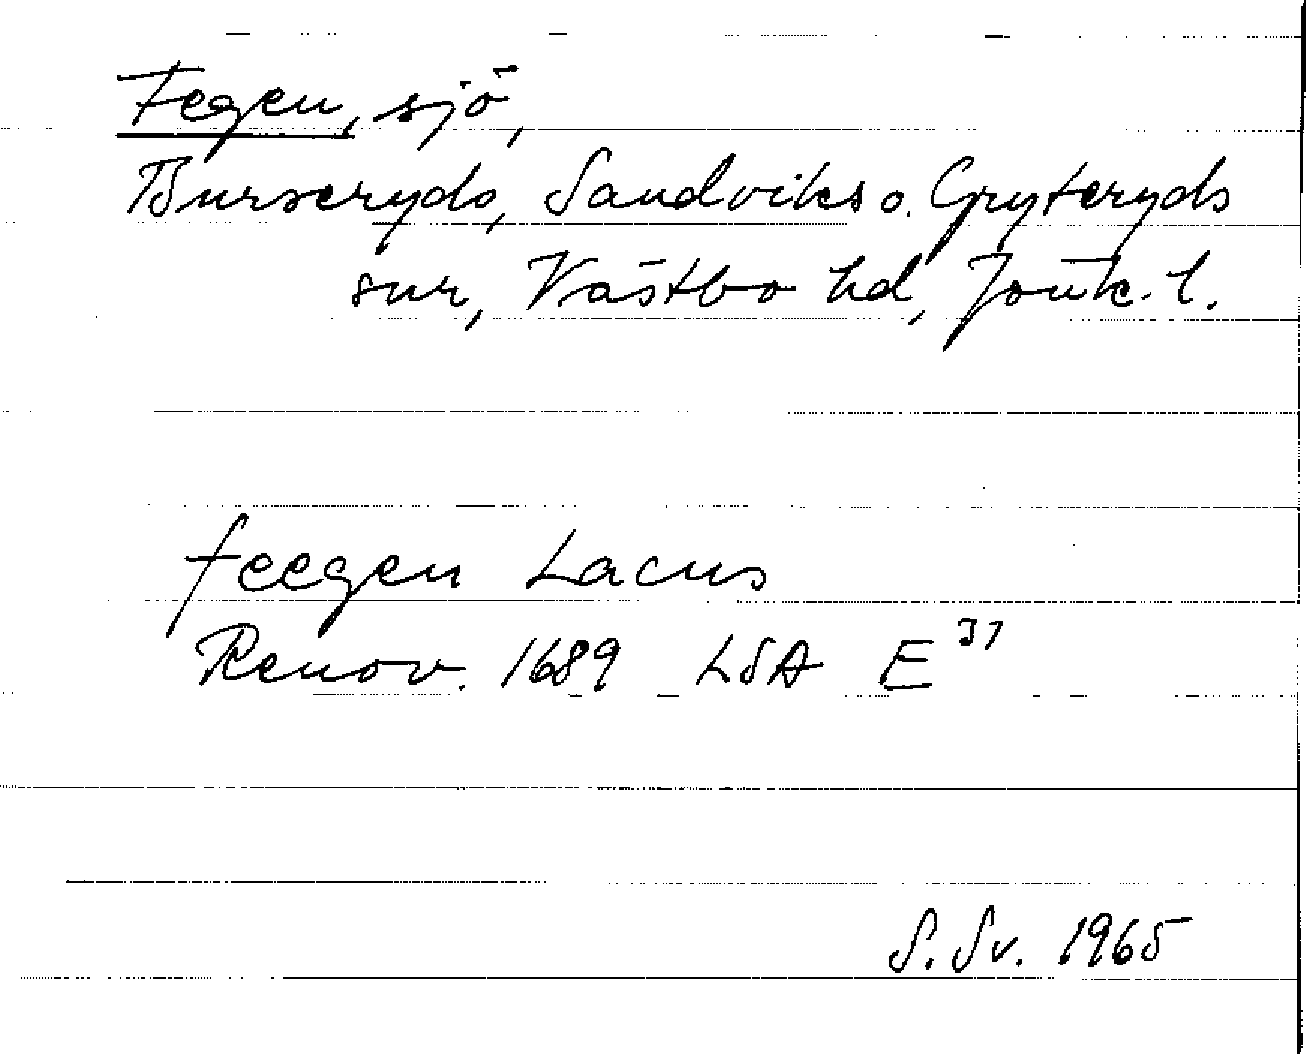 Fegen, sjö,
Burseryds, Sandviks o. Gryteryds
snr, Västbo hd, Jönk. l.
feegen Lacus
Renov. 1689 LSA E 31
S. Sv. 1965